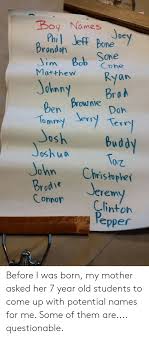 Boy Names
Joey
Phil Jeff Bone
Brandon Sone
Jim Bob Cone
Matthew Ryan
Johnny Brad
Ben Brownie Don
Tommy Jerry Terry
Josh Buddy
Joshua Taz
John Christopher
Brodie Jeremy
Connor Clinton
Pepper
Before I was born, my mother
asked her 7 year old students to
come up with potential names
for me. Some of them are....
questionable.